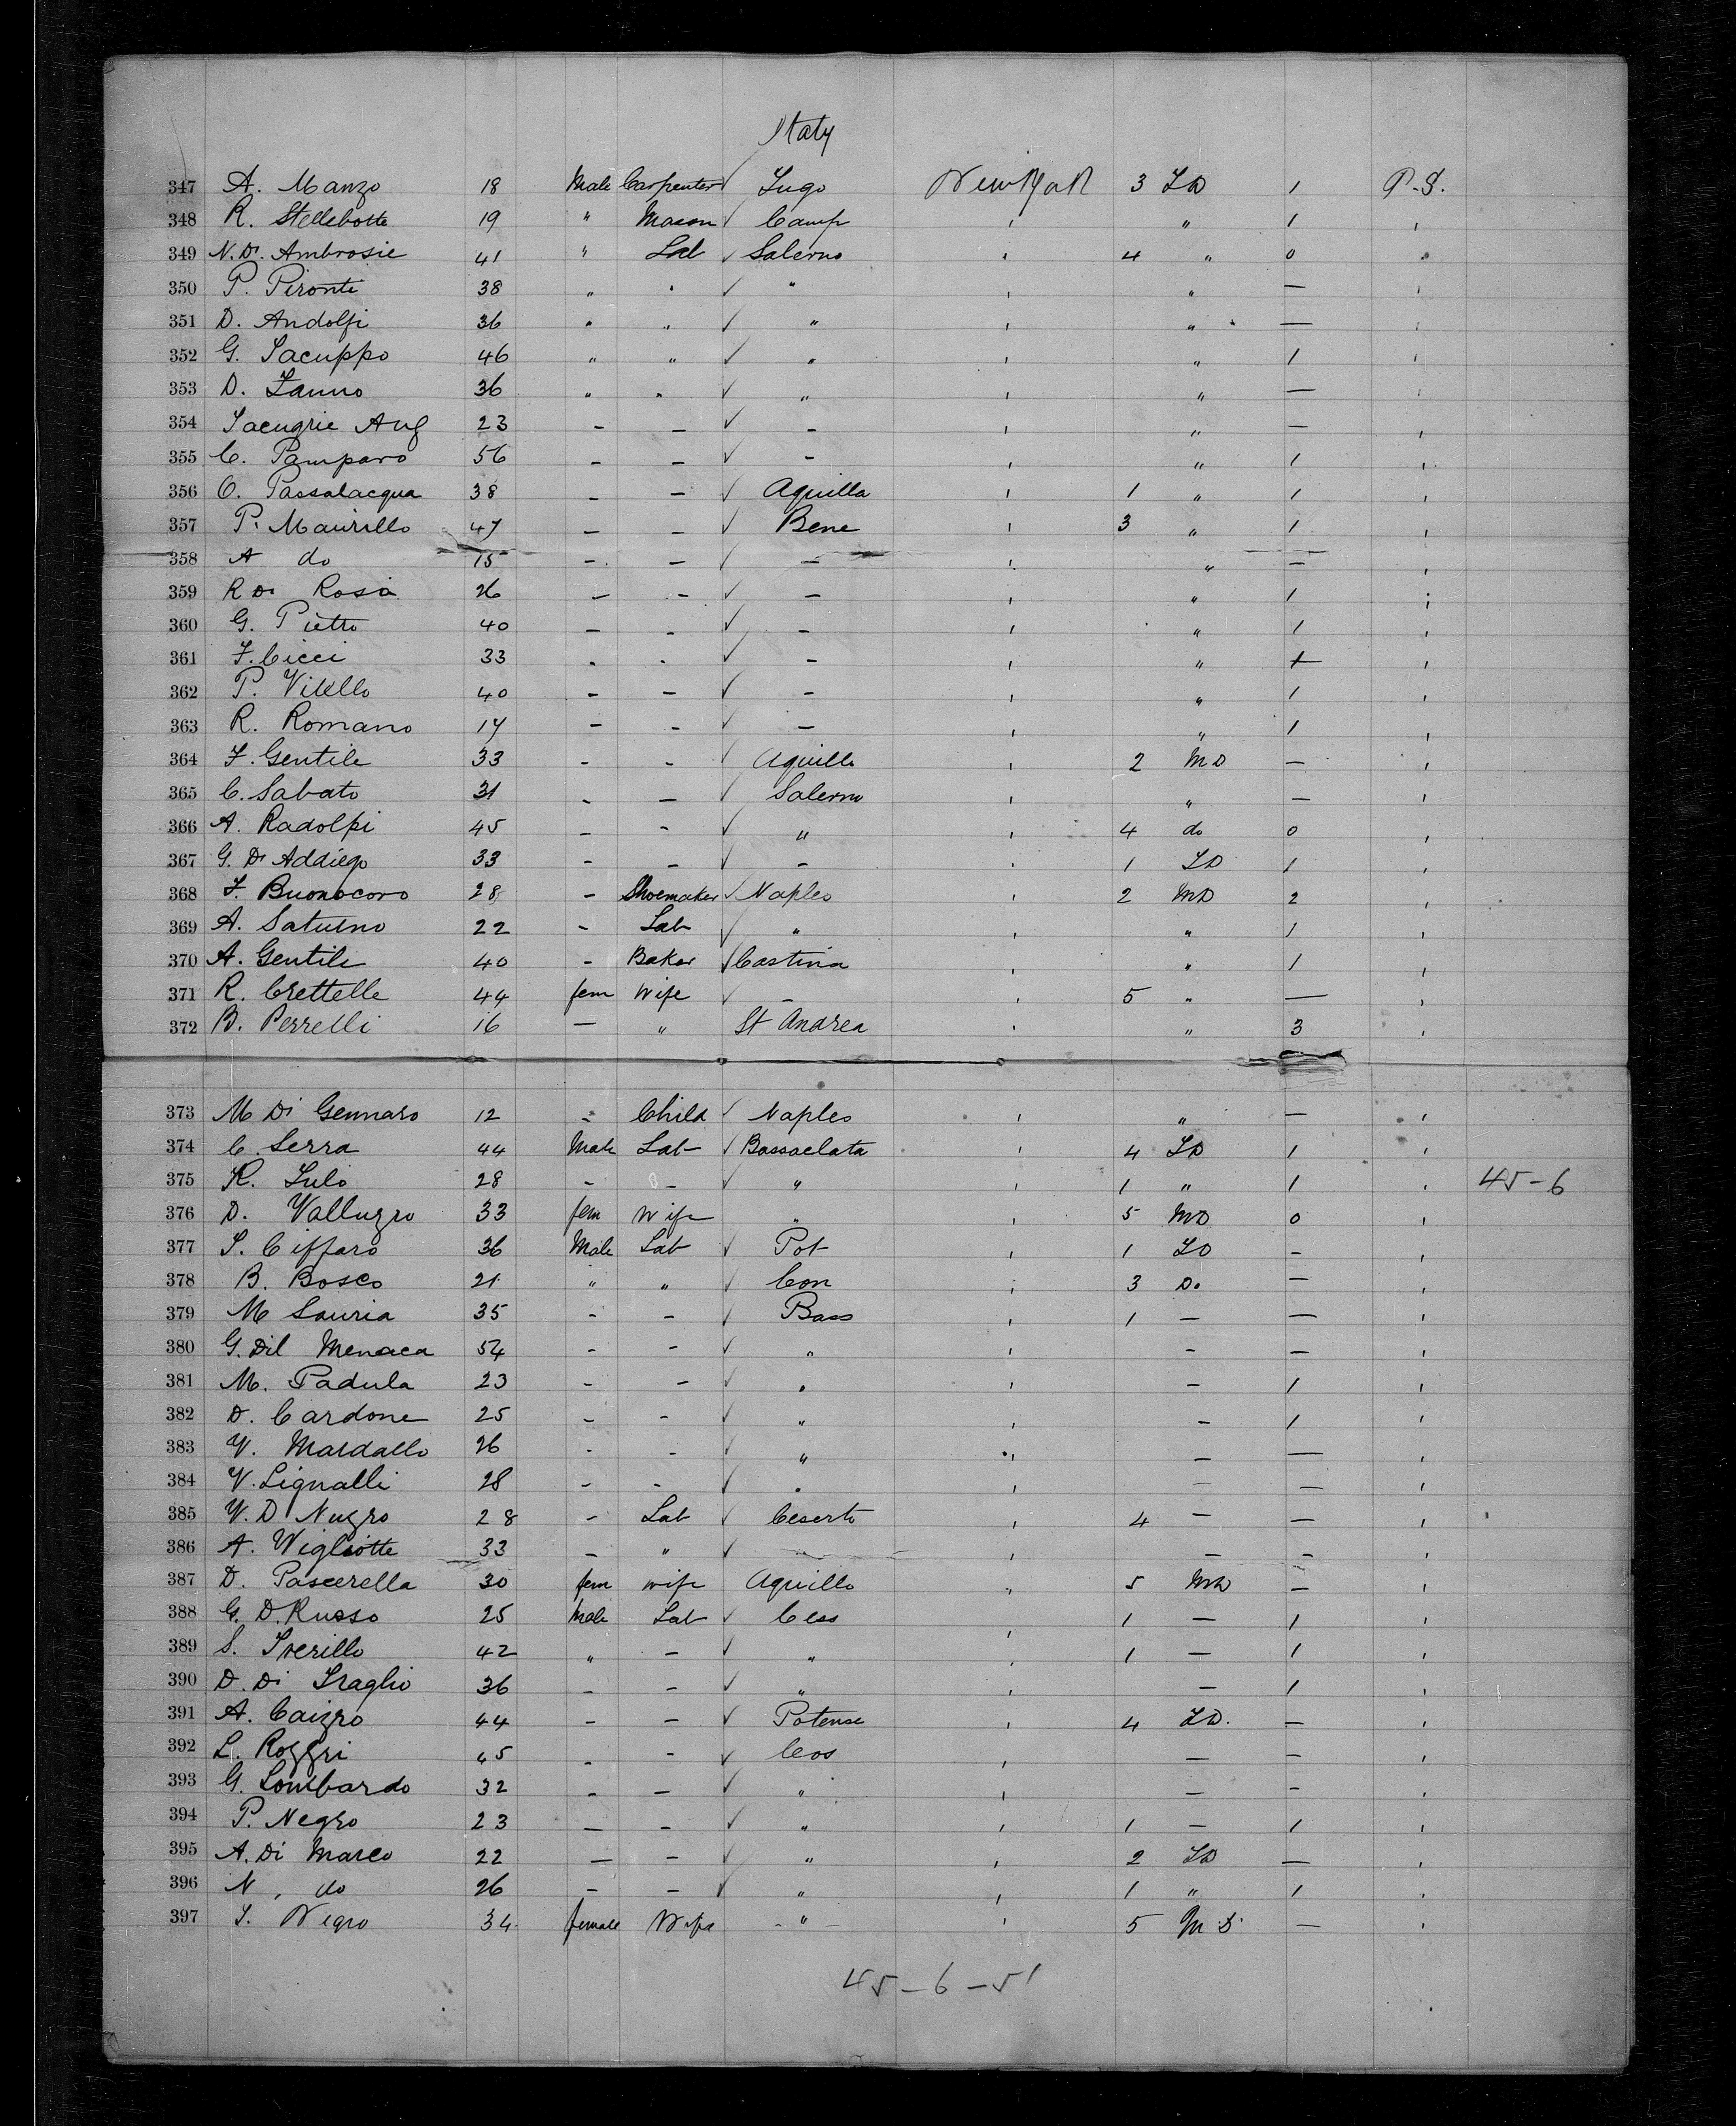 Italy
347 A. Manzo 18 Male Carpenter ✓ Lugo New York 3 LD 1 P.S.
348 R. Stellebotte 19 " Mason ✓ Camp ' " 1 '
349 N. Di Ambrosie 41 " Lab ✓ Salerno ' 4 " 0 '
350 P. Pironti 38 " " ✓ " ' " — '
351 D. Andolfi 36 " " ✓ " ' " — '
352 G. Sacuppo 46 " " ✓ " ' " 1 '
353 D. Zanno 36 " " ✓ " ' " — '
354 Aug 23 - - ✓ - ' " — '
355 C. Pamparo 56 - - ✓ - ' " 1 '
356 O. Passalacqua 38 - - ✓ Aquilla ' 1 " 1 '
357 P. Maurillo 47 - - ✓ Bene ' 3 " 1 '
358 A do 15 - - ✓ - ' " - '
359 R Di Rosa 26 - - ✓ - ' " 1 '
360 G. Pietro 40 - - ✓ - ' " 1 '
361 F. Cicci 33 - - ✓ - ' " 1 '
362 P. Vitello 40 - - ✓ - ' " 1 '
363 R. Romano 17 - - ✓ - ' " 1 '
364 F. Gentile 33 - - ✓ Aquilla ' 2 MD — '
365 C. Sabato 31 - - ✓ Salerno ' " — '
366 A. Radolfi 45 - - ✓ " ' 4 do 0 '
367 G. Di Addiego 33 - - ✓ - ' 1 LD 1 '
368 F. Buonocoro 28 - Shoemaker ✓ Naples ' 2 MD 2 '
369 A. Satutno 22 - Lab ✓ " ' " 1 '
370 A. Gentile 40 - Baker ✓ Castina ' " 1 '
371 R. Crettelle 44 fem Wife ✓ - ' 5 " — '
372 B. Perrelli 16 — " St Andrea ' " 3 '
373 M Di Gennaro 12 - Child ✓ Naples ' " — '
374 C. Serra 44 Male Lab ✓ Bassaclata ' 4 LD 1 '
375 R. Lulo 28 - - ✓ " ' 1 " 1 ' 45-6
376 D. Valluzzo 33 fem Wife " ' 5 MD 0 '
377 S. Ciffaro 36 Male Lab ✓ Pot ' 1 LD - '
378 B. Bosco 21 " " ✓ Con ' 3 Do - '
379 M Sauria 35 - - ✓ Bass ' 1 - — '
380 G. Dil Menaca 54 - - ✓ " ' - — '
381 M. Padula 23 - - ✓ " ' - 1 '
382 D. Cardone 25 - - ✓ " ' - 1 '
383 V. Mardallo 26 - - ✓ " ' - — '
384 V. Lignalli 28 - - ✓ " ' - — '
385 V. D Nugro 28 - Lab ✓Ceserto ' 4 - — '
386 A. Wigliotte 33 - " ✓ - ' - - '
387 D. Pascerella 30 fem wife Aquillo " 5 MD - '
388 G. D. Russo 25 Male Lab ✓ Cess ' 1 - 1 '
389 S. 42 " - ✓ " ' 1 - 1 '
390 D. Di 36 - - ✓ " ' - 1 '
391 A. Caizzo 44 - - ✓ Potense ' 4 LD. - '
392 L. Rozzri 45 - - ✓ Cos ' - - '
393 G. Lombardo 32 - - ✓ " ' - - '
394 P. Negro 23 - - ✓ " ' 1 - 1 '
395 A. Di Marco 22 - - ✓ " ' 2 LD — '
396 N, do 26 - - ✓ " ' 1 " 1 '
397 Negro 34 female Wife - " - ' 5 M.D. — '
45-6-51